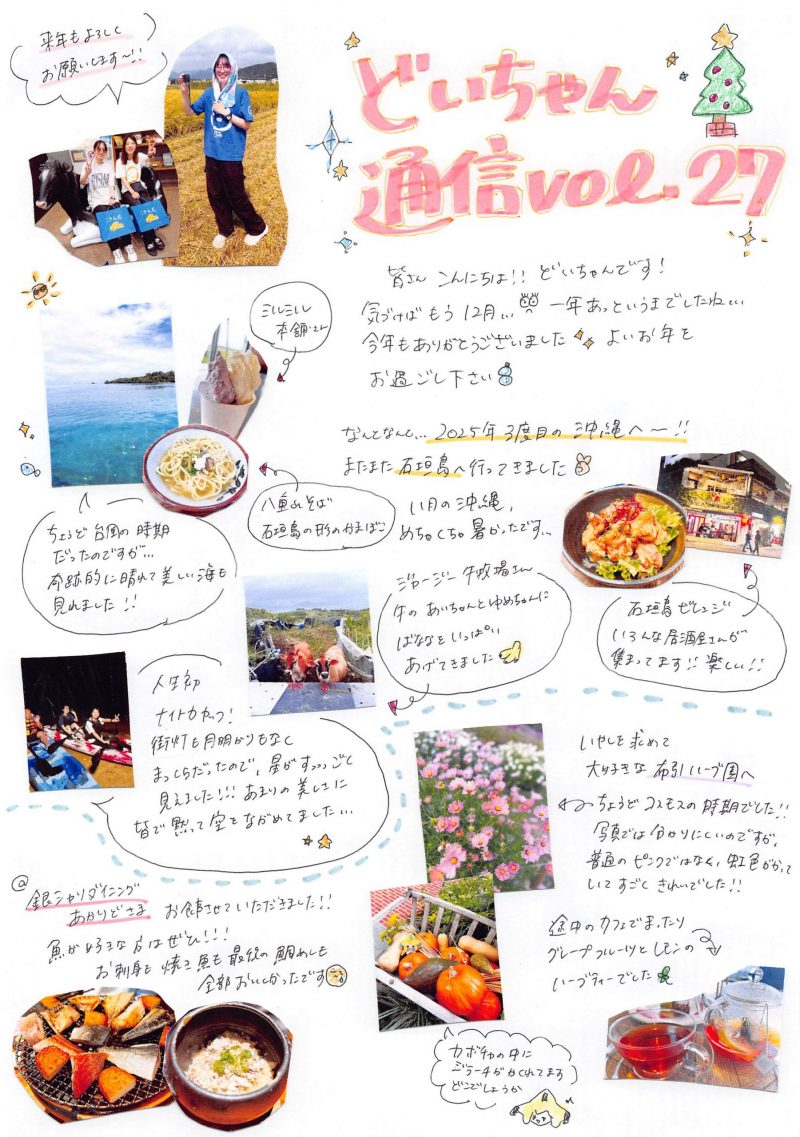 来年もよろしく
お願いします〜!!
どいちゃん
通信vol.27
皆さん こんにちは!! どいちゃんです!
気づけばもう12月... 一年あっというまでしたね...
今年もありがとうございました よいお年を
お過ごし下さい
ミルミル
本舗さん
なんとなんと... 2025年3度目の沖縄へ〜!!
またまた石垣島へ行ってきました
11月の沖縄,
めちゃくちゃ暑かったです...
八重山そば
石垣島の形のかまぼこ
ちょうど台風の時期
だったのですが...
奇跡的に晴れて美しい海も
見れました!!
ジャージー牧場さん
牛のあいちゃんとゆめちゃんに
ばななをいっぱい
あげてきました
石垣島ビレッジ
いろんな居酒屋さんが
集まってます!! 楽しい!!
人生初
ナイトカヤック!
街灯も月明かりもなく
まっくらだったので、星がすっっっごく
見えました!!! あまりの美しさに
皆で黙って空をながめてました...
いやしを求めて
大好きな布引ハーブ園へ
ちょうどコスモスの時期でした!!
写真では分かりにくいのですが,
普通のピンクではなく、虹色がかって
いてすごくきれいでした!!
途中のカフェでまったり
グレープフルーツとレモンの
ハーブティーでした
@
銀シャリダイニング
あかりどさま お食事させていただきました!!
魚が好きな方はぜひ!!!
お刺身も焼き魚も最後の鯛めしも
全部おいしかったです
カボチャの中に
ジラーチがかくれてます
どこでしょうか